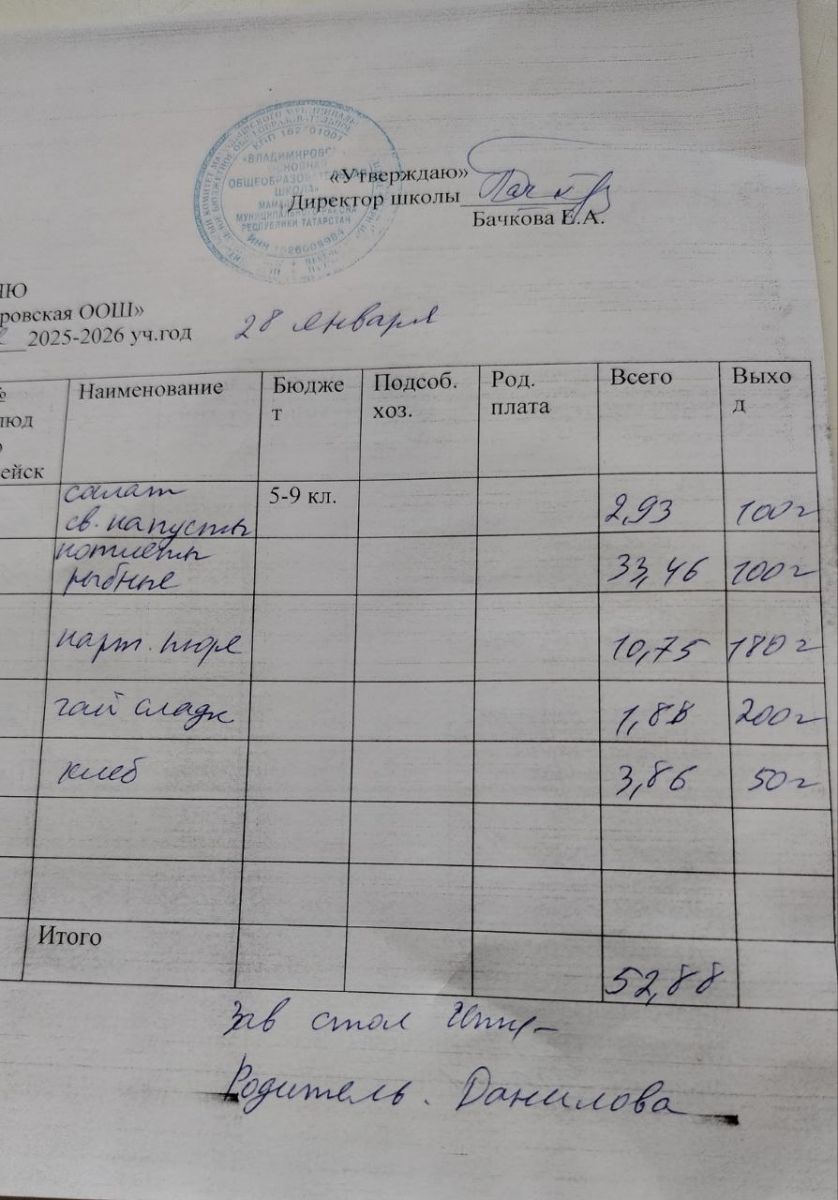 КПП 162701001
«ВЛАДИМИРОВС
ОСНОВНАЯ
ОБЩЕОБРАЗОВАТЕЛЬНАЯ
ШКОЛА»
МУНИЦИПАЛЬНОГО РАЙОНА
РЕСПУБЛИКИ ТАТАРСТАН
«Утверждаю»
Директор школы
Бачкова Е.А.
ню
ровская ООШ»
2025-2026 уч.год 28 января
№ Наименование Бюдже Подсоб. Род. Всего Выхо
люд т хоз. плата д
ейск
салат 5-9 кл.
св. капусты 2,93 100 г
котлеты
рыбные 33,46 100 г
карт. пюре 10,75 180 г
чай сладк 1,88 200 г
хлеб 3,86 50 г
Итого
52,88
Зав стол
Родитель. Данилова